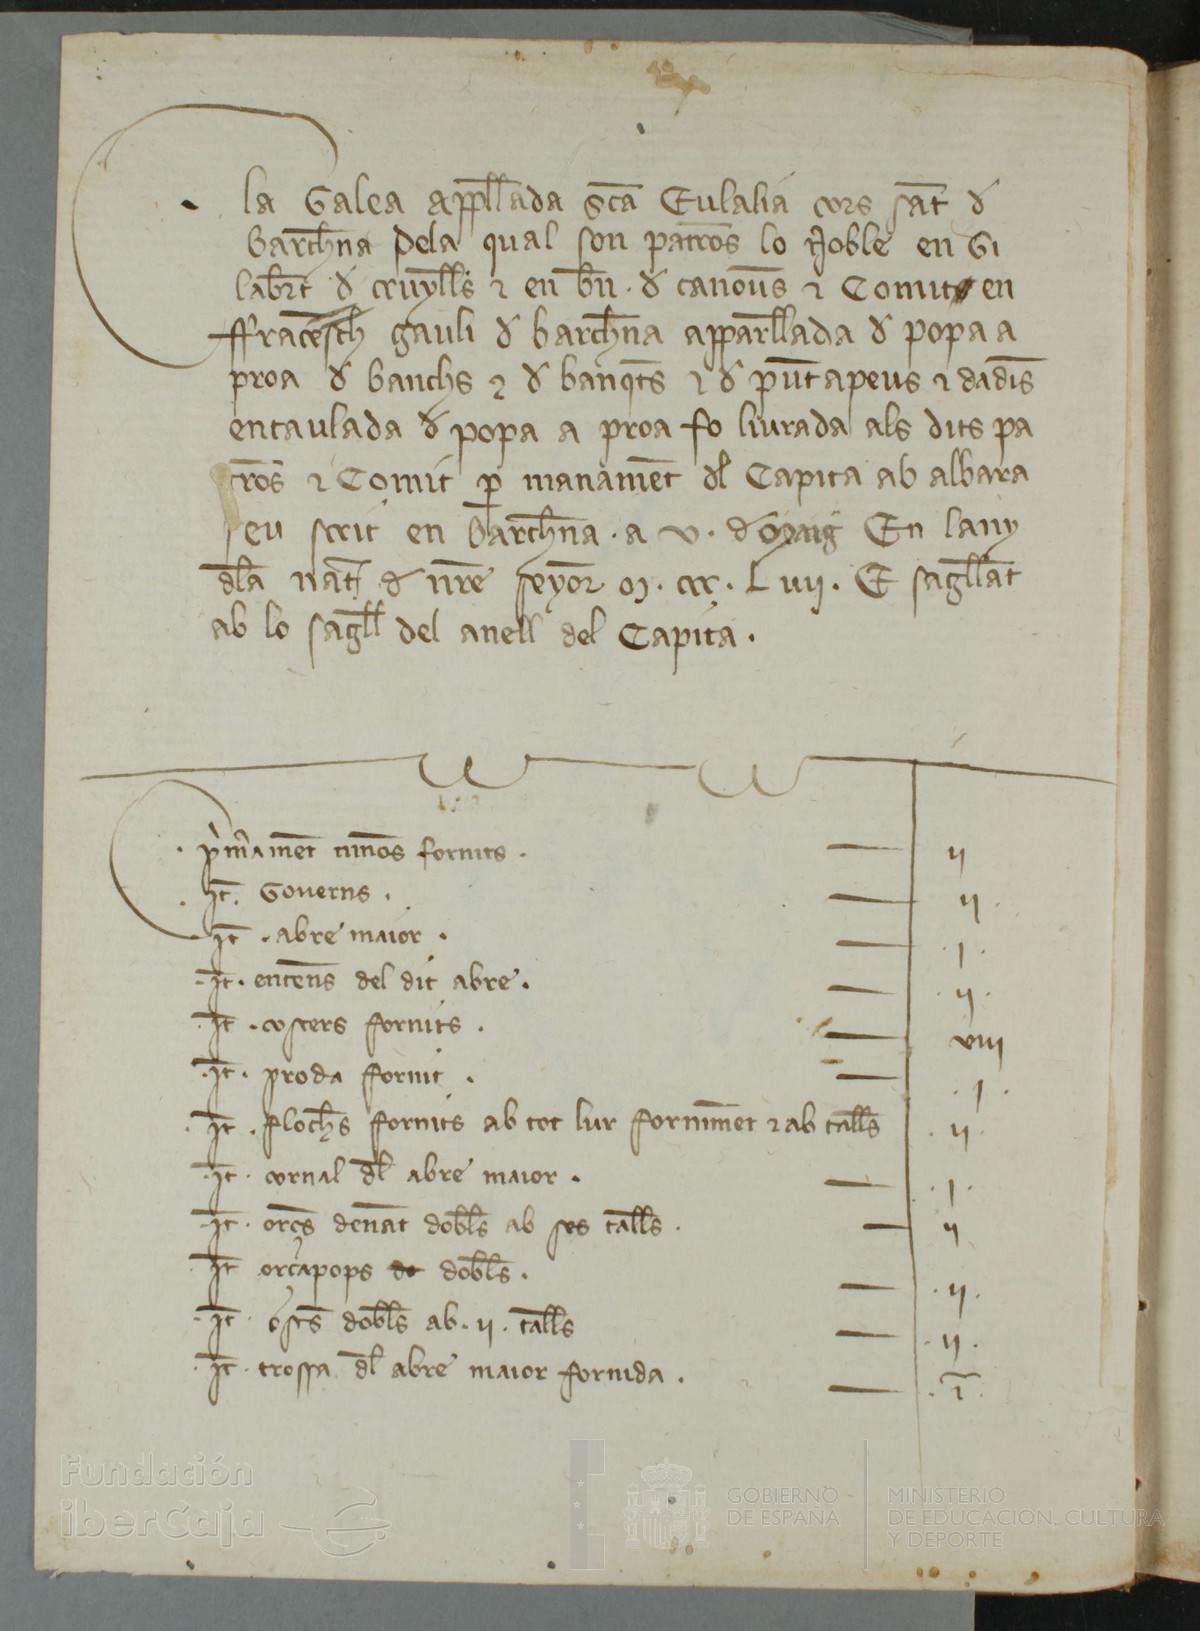 la Galea appllada sca Eulalia cors sat d
barchna dela qual son patros lo Noble en Gi
labrt d cruylls ⁊ en bn · d canous ⁊ Comit en
ffracesch gauli d barchna apparllada d popa a
proa d banchs ⁊ d banqts ⁊ d puntapeus ⁊ dadis
entaulada d popa a proa fo liurada als dits pa
tros ⁊ Comit p manament dl Capita ab albara
seu scrit en barchna · a v · d maig En lany
dla nat d nre senyor M · ccc · L vii · E sagllat
ab lo sagll del anell del Capita ·
· p'mament timos fornits · — ii
· It · Gouerns · — ii ·
It · abre maior · — · i ·
· It · entens del dit abre · — · ii ·
· It · costers fornits · — viii
· It · proda fornit · — · i ·
· It · flochs fornits ab tot lur forniment ⁊ ab talls · ii ·
· It · cornal dl abre maior · — · i ·
· It · orcs denat dobls ab ses talls · — ii
· It · orcapops dobls · — · ii ·
· It · osts dobls ab · ii · talls — · ii ·
· It · trossa dl abre maior fornida · — · i ·
Fundación
iberCaja
GOBIERNO
DE ESPAÑA
MINISTERIO
DE EDUCACIÓN, CULTURA
Y DEPORTE